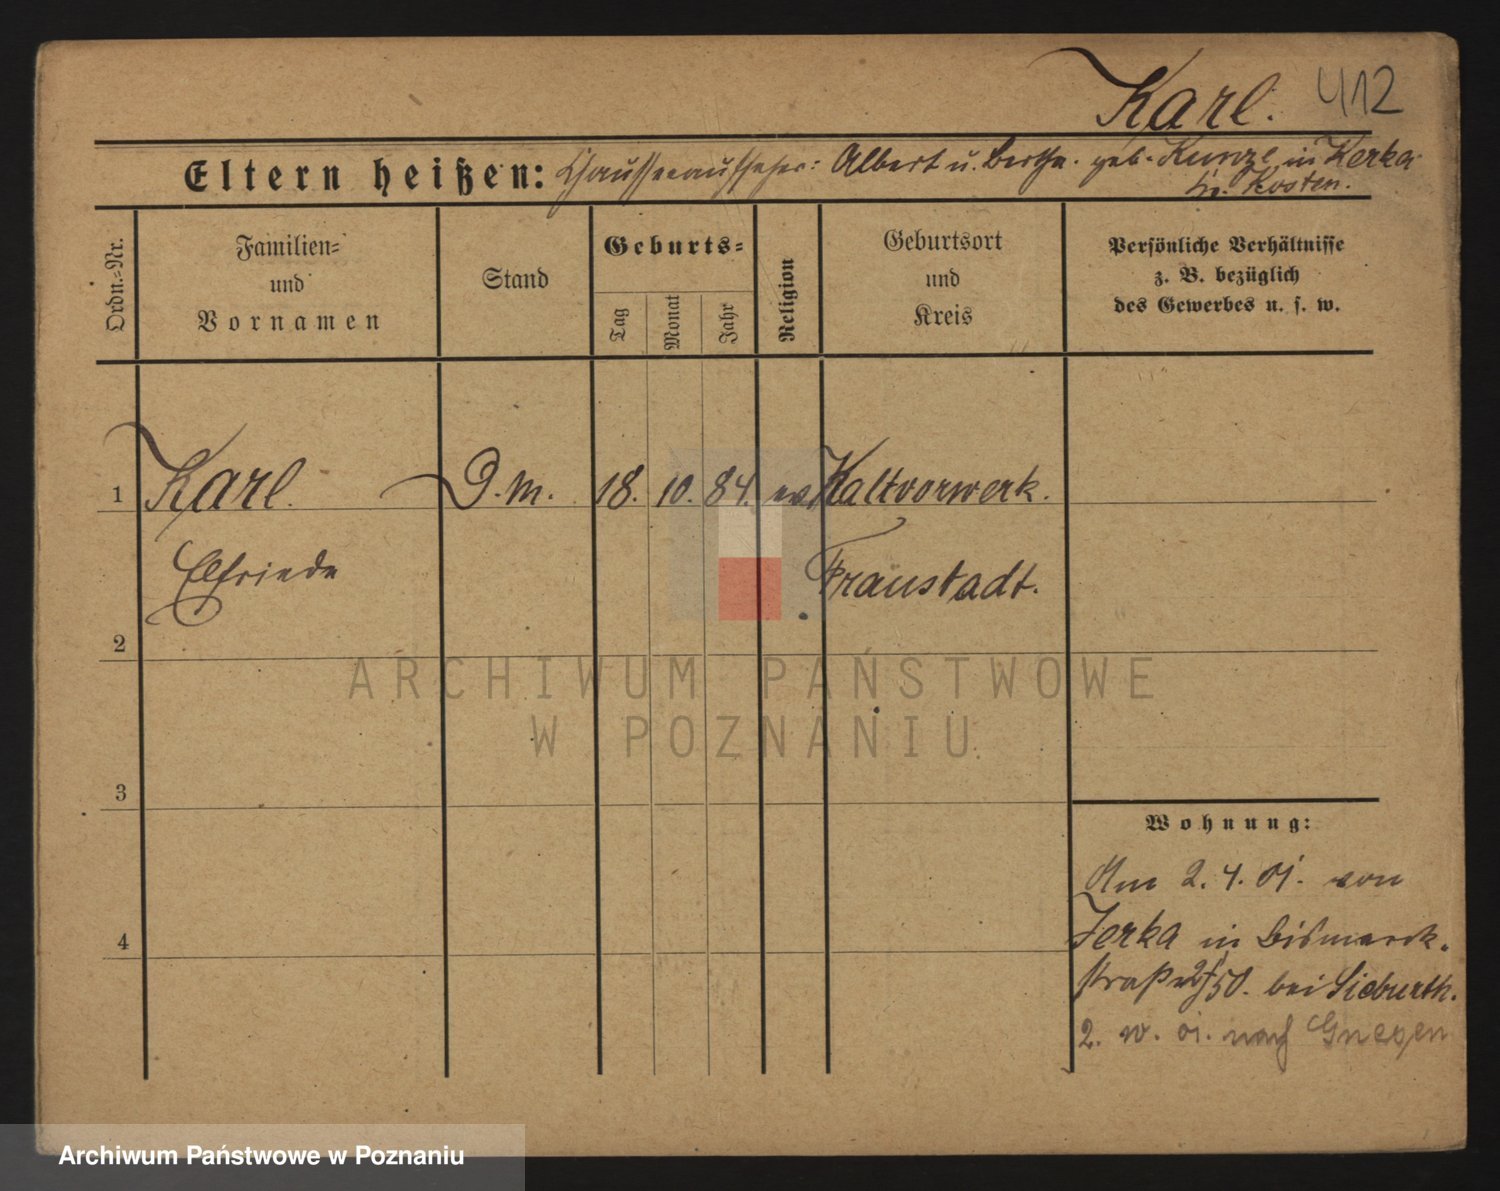 Karl. 412
Eltern heißen: Chausseeaufseher: Albert u. Bertha. geb. Kunze in Zerka
Kr. Kosten.
Ordn.=Nr.
Familien=
und
Vornamen
Stand
Geburts=
Tag
Monat
Jahr
Religion
Geburtsort
und
Kreis
Persönliche Verhältnisse
z. B. bezüglich
des Gewerbes u. s. w.
1 Karl. D. m. 18. 10. 84. ev Kaltvorwerk.
Elfriede Fraustadt.
2
3
4
Wohnung:
Am 2. 4. 01. von
Zerka in Bismarck-
straße 50. bei Sieburth.
2. 10. 01. nach Gnesen
ARCHIWUM PAŃSTWOWE
W POZNANIU
Archiwum Państwowe w Poznaniu